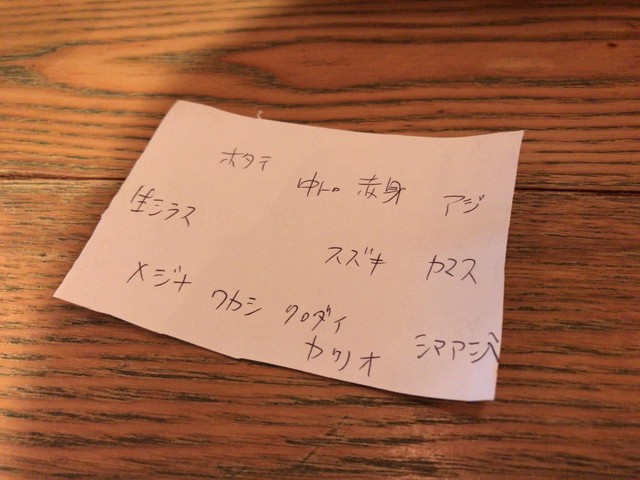 ホタテ 中トロ 赤身 アジ
生シラス スズキ カマス
メジナ ワカシ クロダイ
カツオ シマアジ